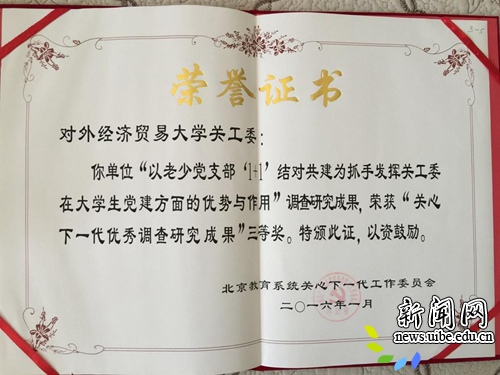 3-5
荣誉证书
对外经济贸易大学关工委：
你单位“以老少党支部‘1+1’结对共建为抓手发挥关工委
在大学生党建方面的优势与作用”调查研究成果，荣获“关心
下一代优秀调查研究成果”三等奖。特颁此证，以资鼓励。
北京教育系统关心下一代工作委员会
二〇一六年一月
新闻网
news.uibe.edu.cn